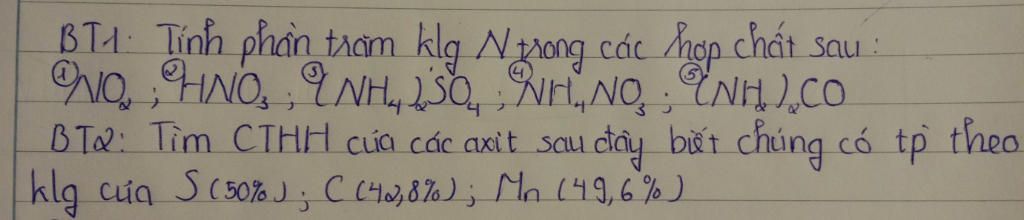 BT1: Tính phần trăm klg N trong các hợp chất sau:
①NO₂; ②HNO₃; ③(NH₄)₂SO₄; ④NH₄NO₃; ⑤(NH₂)₂CO
BT2: Tìm CTHH của các axit sau đây biết chúng có tp theo
klg của S (50%); C (42,8%); Mn (49,6%)